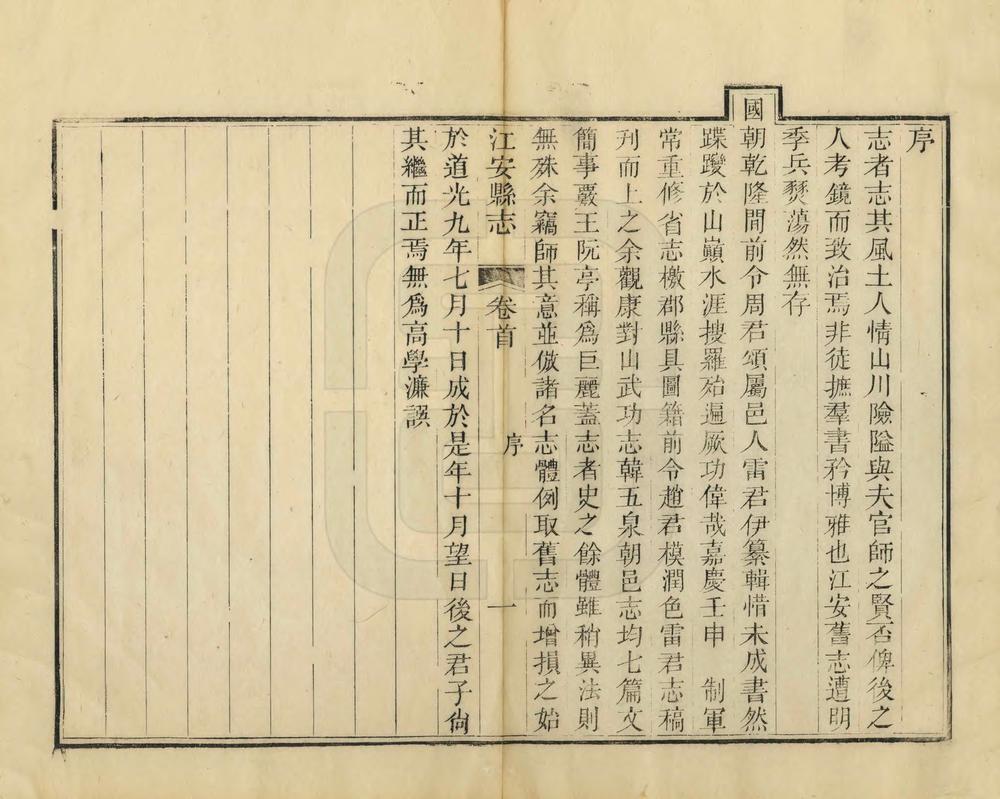 序
志者志其風土人情山川險隘與夫官師之賢否俾後之
人考鏡而致治焉非徒摭羣書矜博雅也江安舊志遭明
季兵燹蕩然無存
國朝乾隆間前令周君頌屬邑人雷君伊纂輯惜未成書然
蹀躞於山巔水涯搜羅殆遍厥功偉哉嘉慶壬申　制軍
常重修省志檄郡縣具圖籍前令趙君模潤色雷君志稿
刋而上之余觀康對山武功志韓五泉朝邑志均七篇文
簡事覈王阮亭稱爲巨麗蓋志者史之餘體雖稍異法則
無殊余竊師其意並倣諸名志體例取舊志而增損之始
江安縣志　卷首　序　一
於道光九年七月十日成於是年十月望日後之君子尙
其繼而正焉無爲高學濂誤